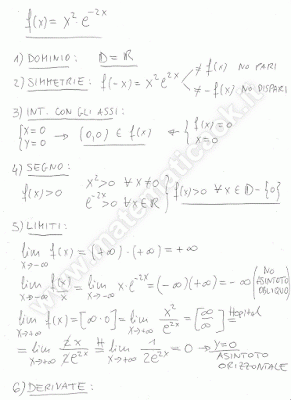 f(x) = x² · e^{-2x}
1) DOMINIO: D = ℝ
2) SIMMETRIE: f(-x) = x² e^{2x} ≠ f(x) NO PARI
≠ -f(x) NO DISPARI
3) INT. CON GLI ASSI:
{x=0 {y=0 → (0,0) ∈ f(x) ← {f(x)=0 {x=0
4) SEGNO:
f(x)>0 x²>0 ∀x≠0 e^{-2x}>0 ∀x∈ℝ } f(x)>0 ∀x∈D-{0}
5) LIMITI:
lim x→-∞ f(x) = (+∞)·(+∞) = +∞
lim x→-∞ f(x)/x = lim x→-∞ x·e^{-2x} = (-∞)(+∞) = -∞ (NO ASINTOTO OBLIQUO)
lim x→+∞ f(x) = [∞·0] = lim x→+∞ x²/e^{2x} = [∞/∞] Hopital =
= lim x→+∞ 2x/2e^{2x} H= lim x→+∞ 1/2e^{2x} = 0 → y=0 ASINTOTO ORIZZONTALE
6) DERIVATE:
www.matematicook.it